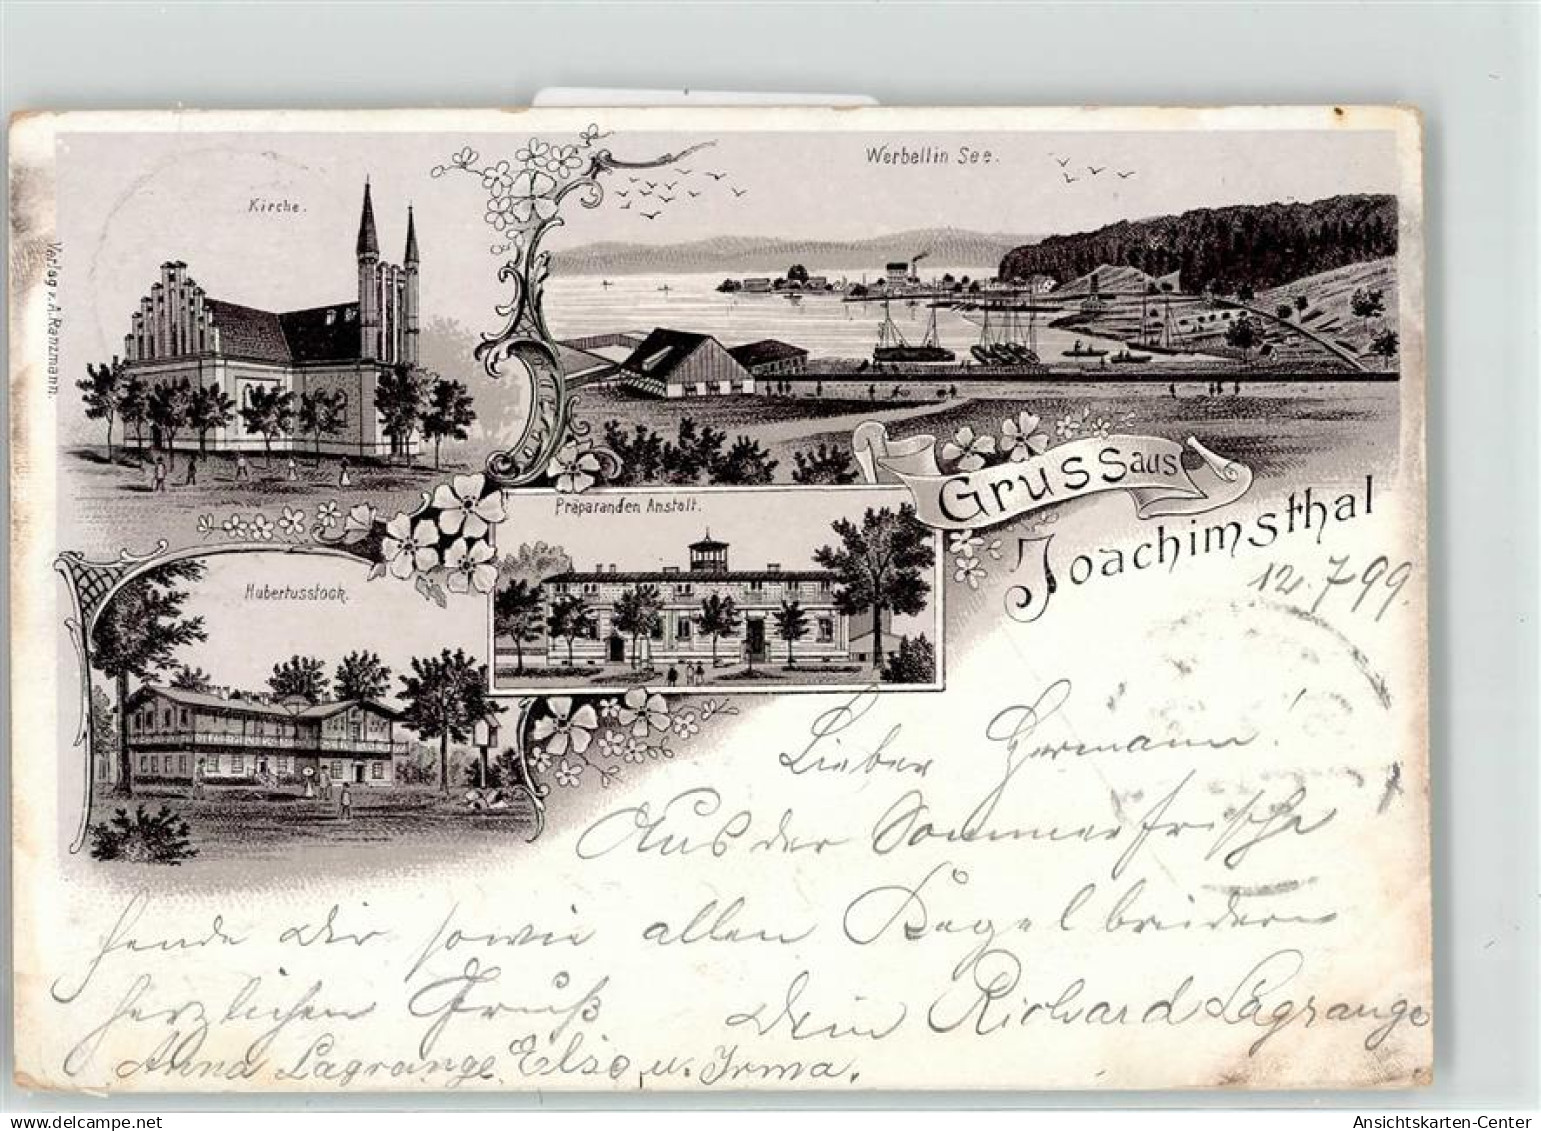 Kirche.
Werbellin See.
Verlag v. A. Ranzmann.
Gruss aus
Joachimsthal
Präparanden Anstalt.
Hubertusstock.
12.7.99.
Lieber Hermann!
Aus der Sommerfrische
sende Dir sowie allen Kegelbrüdern
herzlichen Gruß Dein Richard Lagrange
Anna Lagrange, Else, u. Irma.
Ansichtskarten-Center